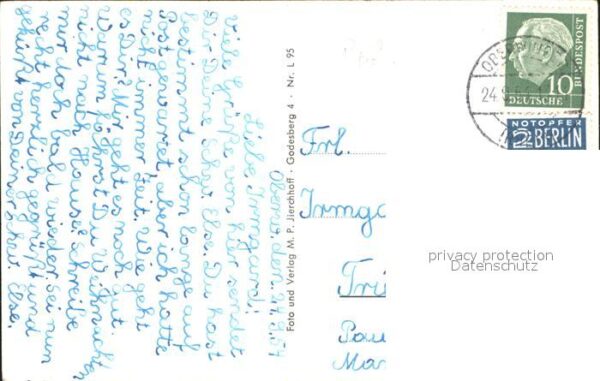 Oberw. den 24.9.54
Liebe Irmgard!
Viele Grüße von hier sendet
Dir Deine Schw. Else. Du hast
bestimmt schon lange auf
Post gewartet, aber ich hatte
nicht immer Zeit. Wie geht
es Dir? Mir geht es noch gut.
Warum kommst Du Weihnachten
nicht nach Hause? Schreibe
mir doch bald wieder. Sei nun
recht herzlich gegrüßt und
geküßt von Deiner Schw. Else.
Foto und Verlag M. P. Jierchhoff · Godesberg 4 · Nr. L 95
Frl.
Irmga
Tri
Pau
Ma
10
DEUTSCHE
BUNDESPOST
24.9.5
NOTOPFER
2 BERLIN
privacy protection
Datenschutz